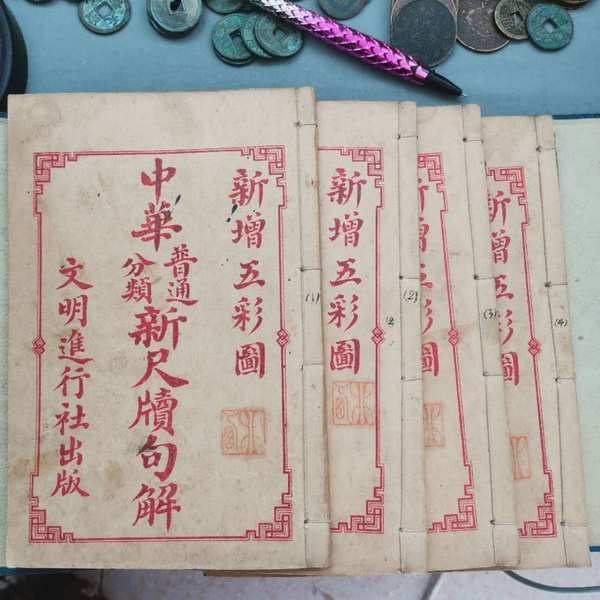 新增五彩圖
中華普通分類新尺牘句解
文明進行社出版
(1)
新增五彩圖
(2)
2
新增五彩圖
(3)
新增五彩圖
(4)